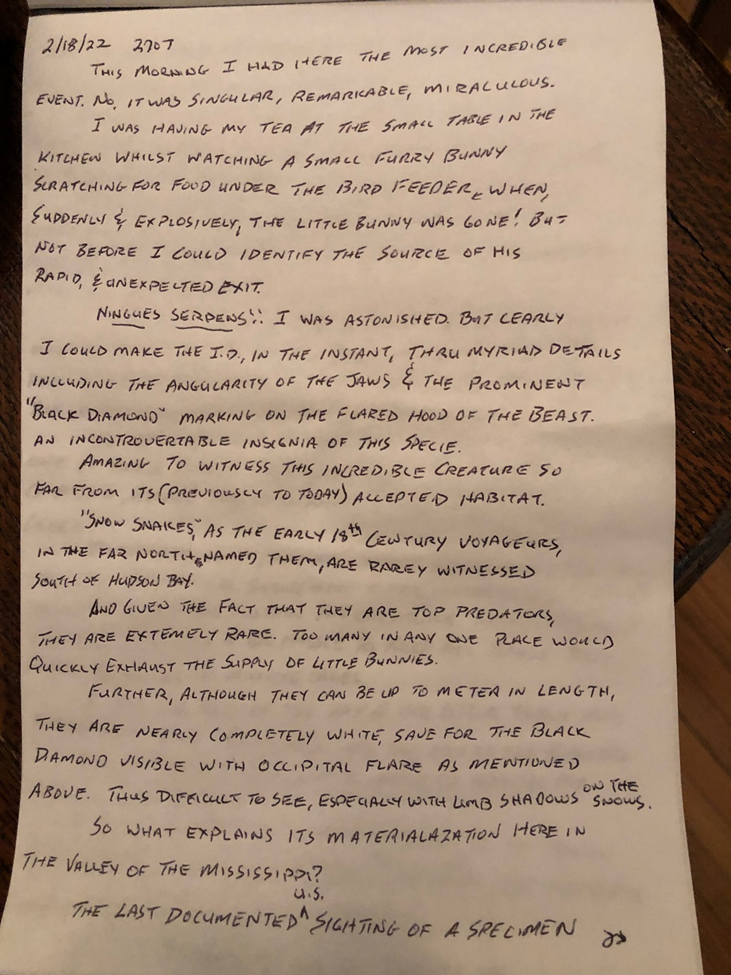 2/18/22 2707
This morning I had here the most incredible
event. No, it was singular, remarkable, miraculous.
I was having my tea at the small table in the
kitchen whilst watching a small furry bunny
scratching for food under the bird feeder, when,
suddenly & explosively, the little bunny was gone! But
not before I could identify the source of his
rapid, & unexpected exit.
Ningues Serpens!! I was astonished. But clearly
I could make the I.D., in the instant, thru myriad details
including the angularity of the jaws & the prominent
"Black Diamond" marking on the flared hood of the beast.
An incontrovertable insignia of this specie.
Amazing to witness this incredible creature so
far from its (previously to today) accepted habitat.
"Snow Snakes", as the early 18th century voyageurs,
in the far north, named them, are rarey witnessed
south of Hudson Bay.
And given the fact that they are top predators,
they are extemely rare. Too many in any one place would
quickly exhaust the supply of little bunnies.
Further, although they can be up to meter in length,
they are nearly completely white, save for the black
diamond visible with occipital flare as mentioned
above. Thus difficult to see, especially with limb shadows on the snows.
So what explains its materialazation here in
the valley of the Mississippi?
The last documented U.S. sighting of a specimen